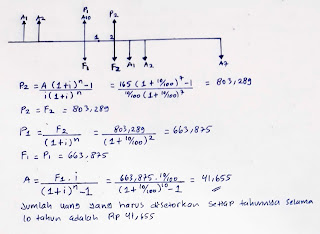 P₁ P₂
A₁ A₂ A₁₀
1 2
F₁ F₂ A₁ A₂ A₇
P₂ = A (1+i)ⁿ-1 / i(1+i)ⁿ = 165 (1+10/100)⁷-1 / 10/100 (1+10/100)⁷ = 803,289
P₂ = F₂ = 803,289
P₁ = F₂ / (1+i)ⁿ = 803,289 / (1+10/100)² = 663,875
F₁ = P₁ = 663,875
A = F₁ . i / (1+i)ⁿ-1 = 663,875 . 10/100 / (1+10/100)¹⁰-1 = 41,655
Jumlah uang yang harus disetorkan setiap tahunnya selama
10 tahun adalah Rp 41,655